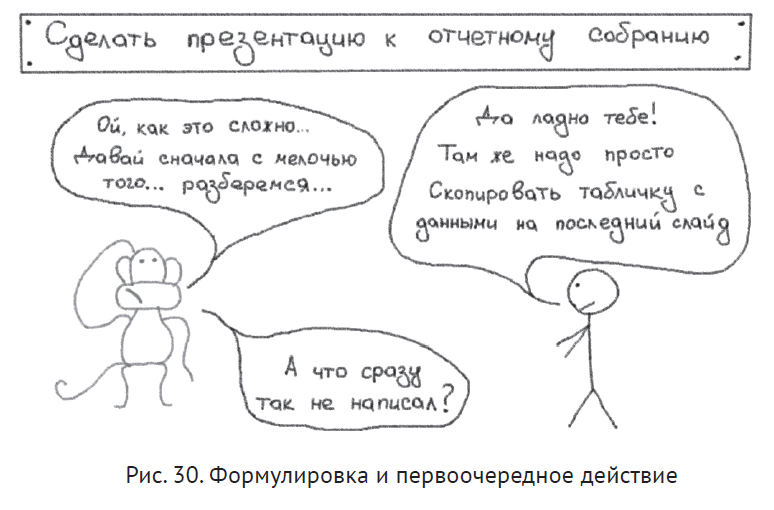 Сделать презентацию к отчетному собранию
Ой, как это сложно...
Давай сначала с мелочью
того... разберемся...
Да ладно тебе!
Там же надо просто
Скопировать табличку с
данными на последний слайд
А что сразу
так не написал?
Рис. 30. Формулировка и первоочередное действие